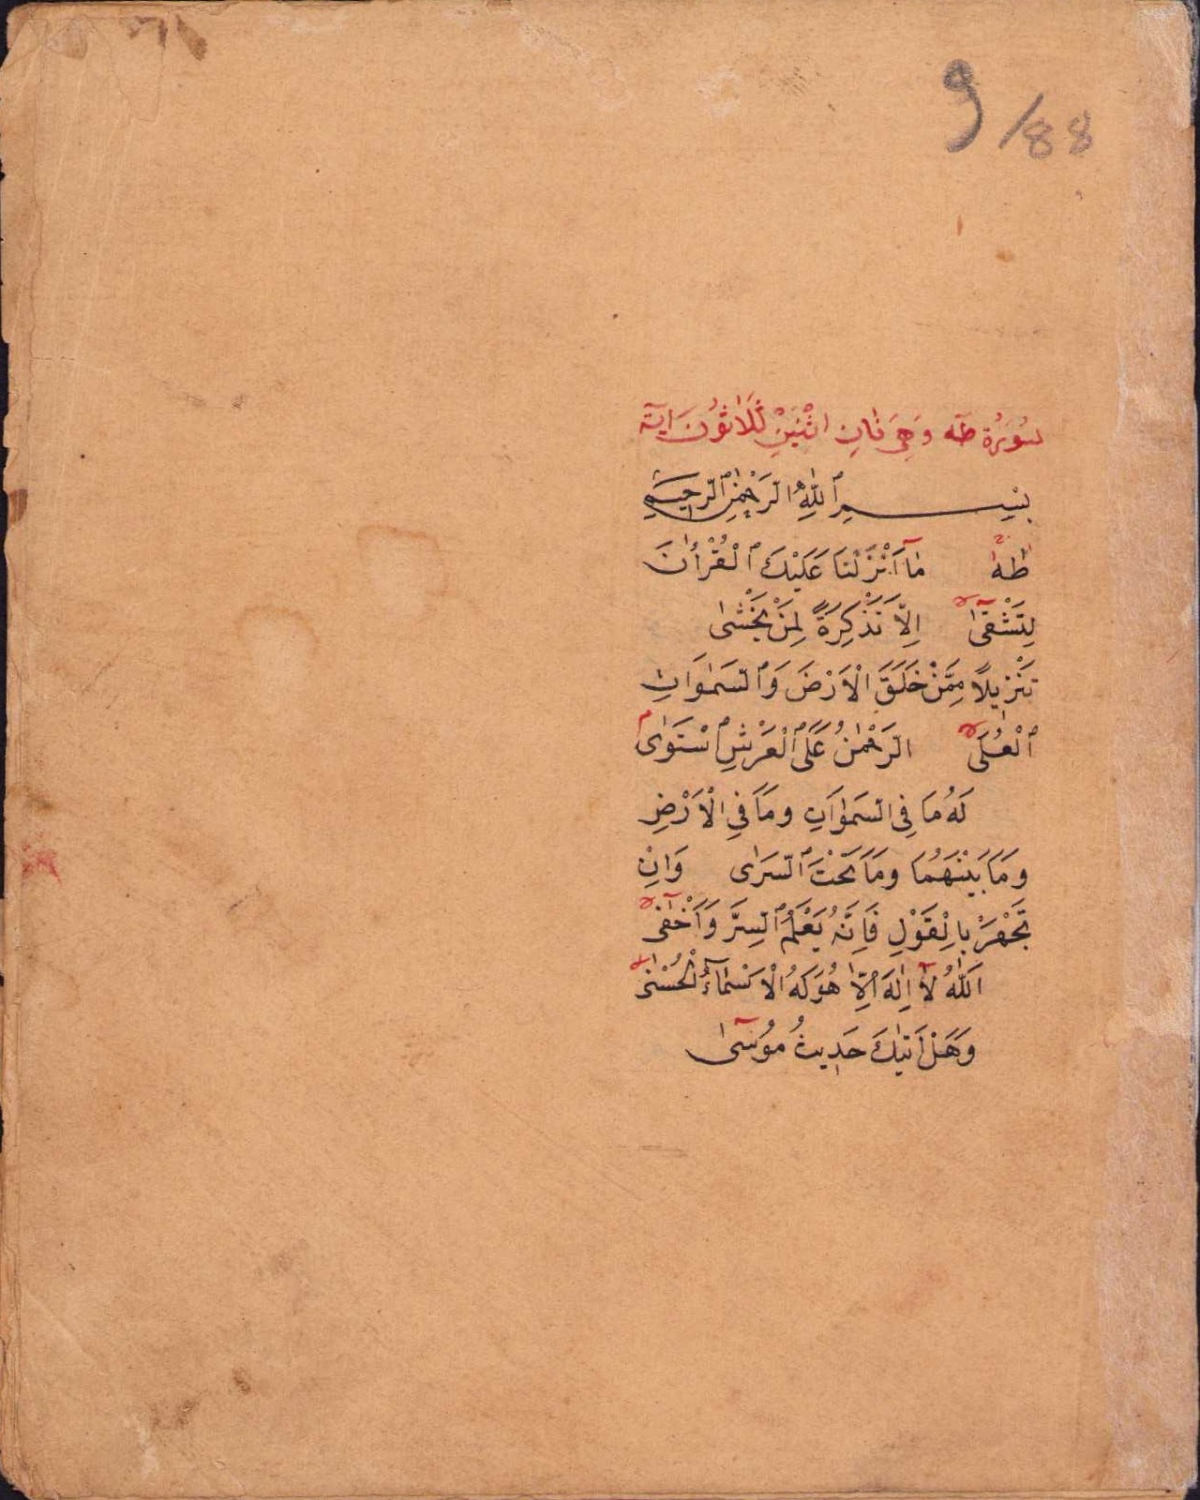 9/88
سُورَةُ طٰهٓ وَهِيَ اثْنَيْنِ ثَلَاثُونَ اٰيَة
بِسْمِ ٱللّٰهِ الرَّحْمٰنِ ٱلرَّحِيمِ
طٰهٰ مَآ اَنْزَلْنَا عَلَيْكَ ٱلْقُرْاٰنَ
لِتَشْقٰىٓ اِلَّا تَذْكِرَةً لِمَنْ يَخْشٰى
تَنْزِيلًا مِمَّنْ خَلَقَ الْاَرْضَ وَٱلسَّمٰوَاتِ
ٱلْعُلَى الرَّحْمٰنُ عَلَى ٱلْعَرْشِ ٱسْتَوٰى
لَهُ مَا فِى السَّمٰوَاتِ وَمَا فِى الْاَرْضِ
وَمَا بَيْنَهُمَا وَمَا تَحْتَ ٱلسَّرٰى وَاِنْ
تَجْهَرْ بِالْقَوْلِ فَاِنَّهُ يَعْلَمُ ٱلسِّرَّ وَاَخْفٰى
اَللّٰهُ لَآ اِلٰهَ اِلَّا هُوَ لَهُ الْاَسْمَآءُ الْحُسْنٰى
وَهَلْ اَتٰيكَ حَدِيثُ مُوسٰىٓ